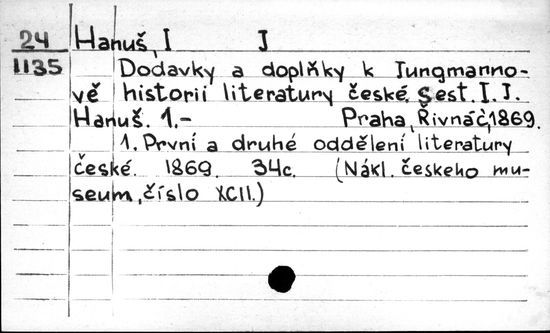 24 Hanuš, I J
1135 Dodavky a doplňky k Jungmanno-
vě historii literatury české. Sest. I. J.
Hanuš. 1.- Praha, Řivnáč, 1869.
1. První a druhé oddělení literatury
české. 1869. 34c. (Nákl. českeho mu-
seum, číslo XCII.)